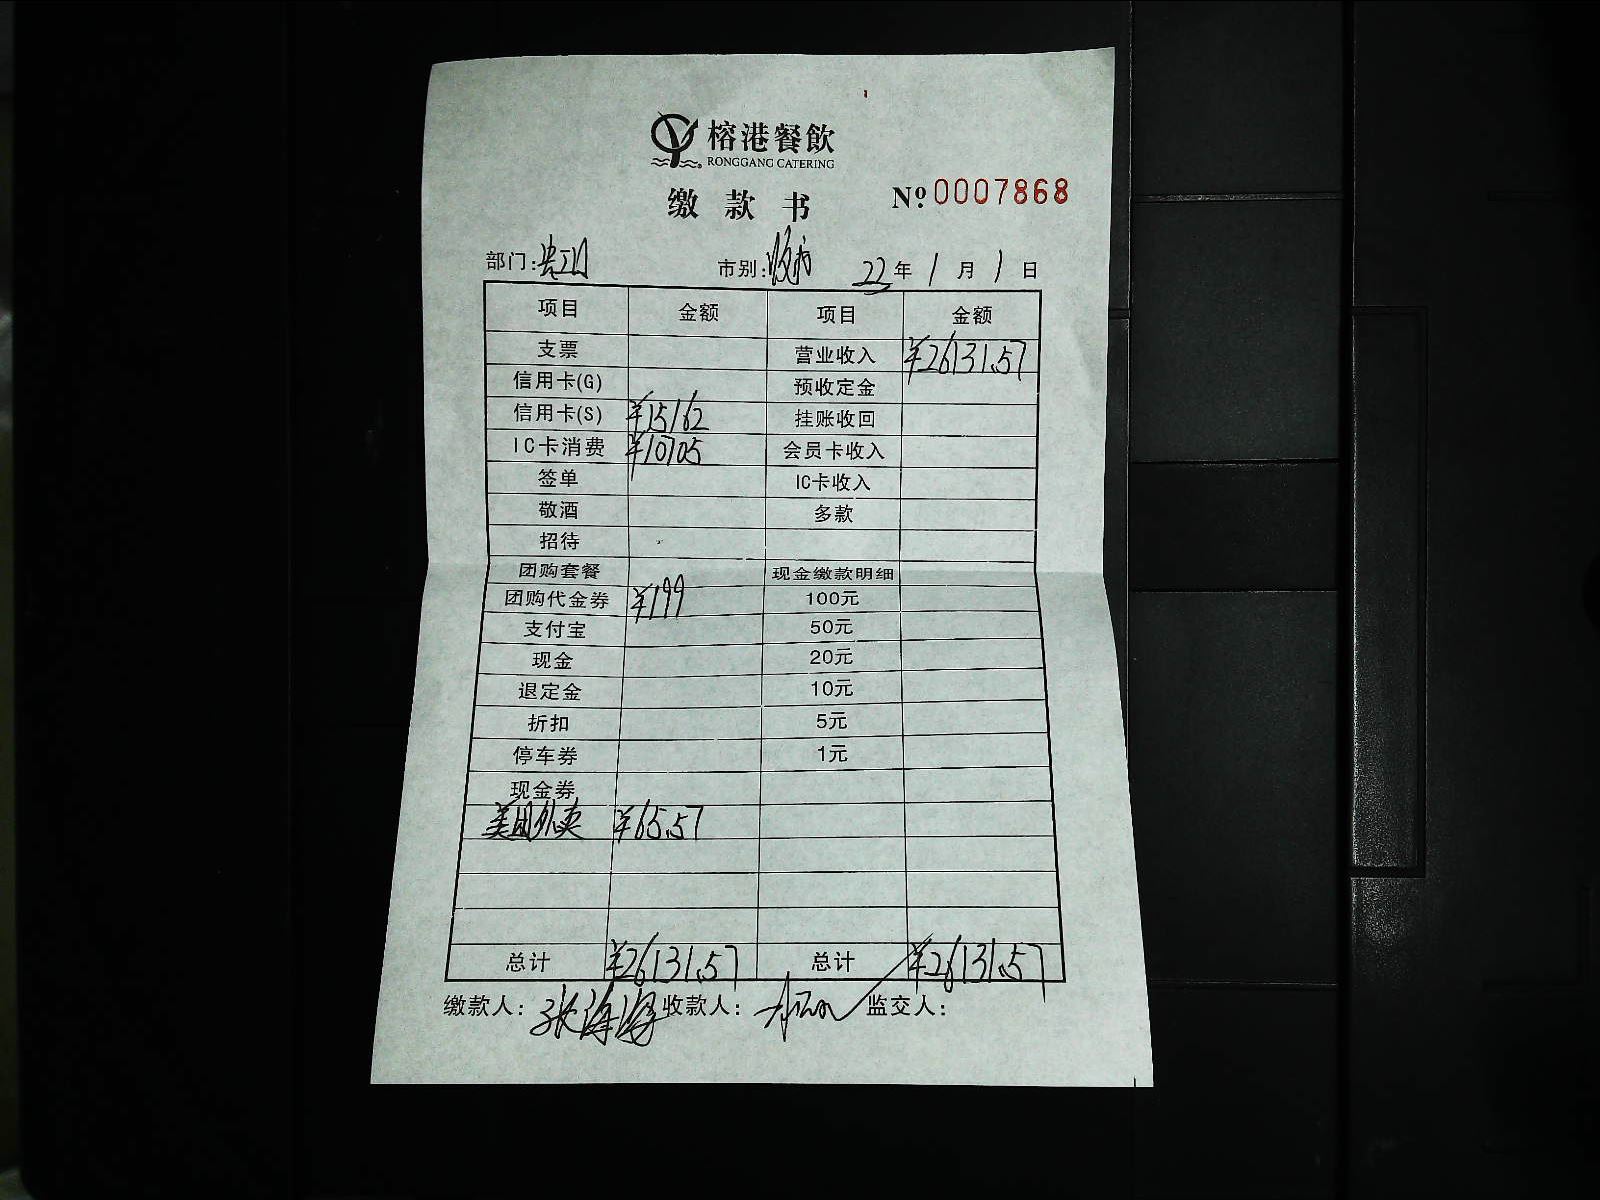 榕港餐飲
RONGGANG CATERING
缴款书 № 0007868
部门: 市别: 22年1月1日
项目 金额 项目 金额
支票 营业收入 ¥26131.57
信用卡(G) 预收定金
信用卡(S) ¥15162 挂账收回
IC卡消费 ¥10705 会员卡收入
签单 IC卡收入
敬酒 多款
招待
团购套餐 现金缴款明细
团购代金券 ¥199 100元
支付宝 50元
现金 20元
退定金 10元
折扣 5元
停车券 1元
现金券
美团外卖 ¥65.57
总计 ¥26131.57 总计 ¥26131.57
缴款人: 张海 收款人: 监交人: